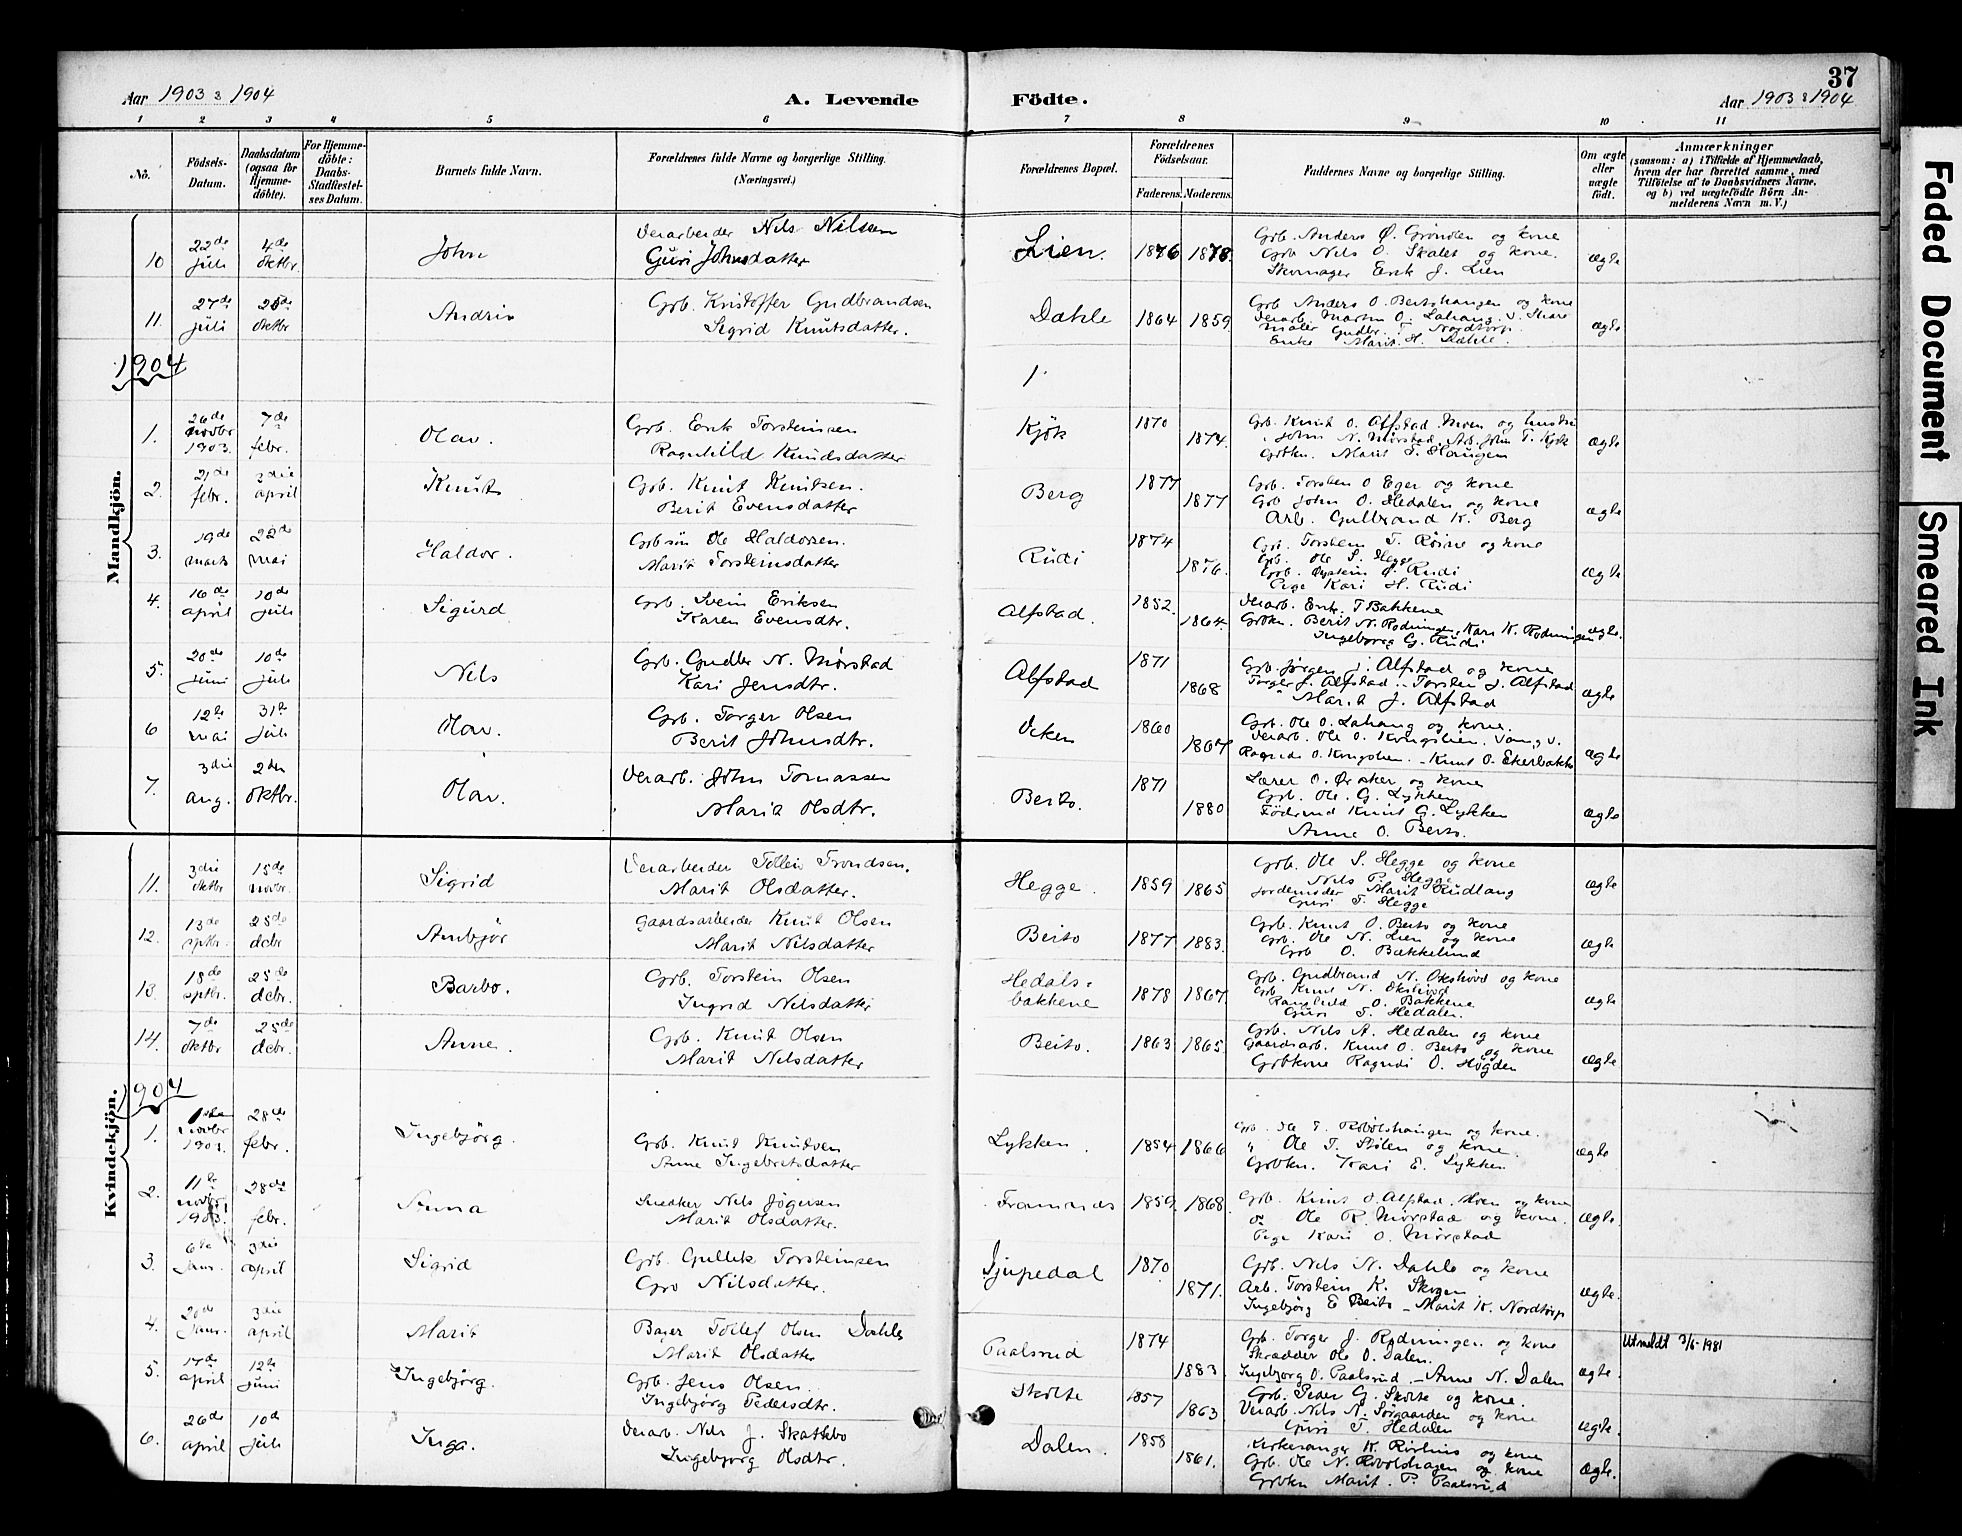 37
Aar 1903 & 1904
A. Levende Födte.
Aar 1903 & 1904
1 2 3 4 5 6 7 8 9 10 11
No.
Födsels-Datum.
Daabsdatum (ogsaa for Hjemmedöbte).
For Hjemmedöbte: Daabs-Stadfæstelses Datum.
Barnets fulde Navn.
Forældrenes fulde Navne og borgerlige Stilling.
(Næringsvei.)
Forældrenes Bopæl.
Forældrenes Födselsaar.
Faderens. Moderens.
Faddernes Navne og borgerlige Stilling.
Om ægte eller uægte födt.
Anmærkninger
(saasom: a) i Tilfælde af Hjemmedaab, hvem der har forrettet samme, med Tilföielse af to Daabsvidners Navne, og b) ved uægtefödte Börn Anmelderens Navn m. V.)
Mandkjön.
10 22de juli 4de oktbr John
Verarbeider Nils Nilssen
Guri Johnsdatter
Lien. 1876 1878.
Grb. Anders Ø. Grönolen og kone
Grb Nils O. Skalet og kone.
Skomager Erik J. Lien
ægte
11. 27de juli oktbr
Grb. Kristoffer Gudbrandsen
Sigrid Knutsdatter.
Dahle 1864 1859
Grb Anders O. Beitohaugen og kone
Maler Gudbr. T. Nordtorp.
Enke Marit H. Dahle.
ægte
1904
1. 26de novbr 1903. 7de febr. Olav.
Grb. Erik Torsteinsen
Ragnhild Knudsdatter
Kjök 1870 1874.
Grb. Knut O. Alfstad Moen og hustru
John N. Mörstad. Arb. John T. Kjök
Grbkn. Marit T. Haugen
ægte
2. 21de febr. 3die april Knut
Grb. Knut Knutsen.
Berit Evensdatter
Berg 1877 1877
Grb. Torsten O Eger og kone
Grb John O. Hedalen og kone
Arb. Gulbrand K. Berg
ægte
3. 19de marts 22de mai Haldor.
Grbsön Ole Haldorsen.
Marit Torsteinsdatter
Rudi 1874 1876.
Grb. Torstein T. Röine og kone
Grb. Ole S. Hegge
Grb. Øystein Ø. Rudi
Pige Kari H. Rudi
ægte
4. 16de april 10de juli Sigurd
Grb. Svein Eriksen
Karen Evensdtr.
Alfstad. 1852. 1864.
Verarb. Erik T Bakkene
Grbkn. Berit N. Rodningen, Kari K. Rodningen
Ingeborg G. Rudi
ægte.
5. 20de juni 10de juli Nils
Grb. Gudbr N. Mörstad
Kari Jensdtr.
Alfstad 1871 1868
Grb. Jörgen J. Alfstad og kone
Torger J. Alfstad - Torsten J. Alfstad
" Marit J. Alfstad
ægte
6 12te mai 31te juli Olav.
Grb. Torger Olsen
Berit Johnsdtr.
Veken 1860 1867
Grb. Ole O. Lahaug og kone.
Verarb. Ole O. Kongslien. Vang v.
Ragndi O. Kongslien. - Knut O. Ekerbakke
ægte
7. 3die aug. 2den oktbr. Olav.
Verarb. John Tomassen
Marit Olsdtr.
Beito. 1871 1880
Lærer O. Øraker og kone
Grb. Ole. G. Lykken
Föderaad Knut G. Lykken
Anne O. Beito.
ægte
Kvindekjön.
11. 3die oktbr 15de novbr. Sigrid
Verarbeider Tollei Trondsen.
Marit Olsdatter.
Hegge. 1859 1865
Grb. Ole S. Hegge og kone
Nils P. Hegge
Jordemoder Marit Rudlang
Guri T. Hegge
ægte
12. 13de sptbr. 25de dcbr. Anbjör
Gaardsarbeider Knut Olsen
Marit Nilsdatter
Beito 1877 1883.
Grb. Knut O. Beito og kone
Grb. Ole N. Lien og kone
Grb O. Bækkelund
ægte
13. 18de sptbr. 25de dcbr. Barbo.
Grb. Torstein Olsen
Ingrid Nilsdatter
Hedalsbakkene 1878 1867.
Grb. Gudbrand N. Okshovd og kone
Grb Knut N. Okshovd
Ranghild O. Bakkene
Guri T. Hedalen.
ægte
14. 7de oktbr 25de dcbr. Anne.
Grb. Knut Olsen
Marit Nilsdatter
Beito. 1863 1865.
Grb. Nils A. Hedalen og kone
Gaardsarb. Knut O. Beito og kone
Grbkone Ragndi O. Högden
ægte
1904
1. 1ste novbr 1903. 28de febr. Ingebjörg.
Grb. Knut Knutsen
Anne Ingebretsdatter
Lykken 1854 1866
Grb. Ole E. Robölshaugen og kone.
" Ole T. Stölen og kone.
Grbkn. Kari E. Lykken
ægte
2. 11te novbr 1903. 28de febr. Anna
Snedker Nils Jögersen
Marit Olsdatter.
Framnæs 1859 1868.
Grb. Knut O. Alfstad Moen og kone
Ole R. Mörstad og kone.
Pige Kari O. Mörstad
ægte.
3. 6te Janr. 3die april Sigrid
Grb. Gullek Torsteinsen
Gro Nilsdatter.
Djupedal 1870 1871.
Grb. Nils N. Dahle og kone
Arb. Torstein K. Skogen
Ingebjörg E Beito - Marit K. Nordtorp
ægte.
4. 20de Janr. 3die april Marit
Bager Tollef Olsen Dahle
Marit Olsdatter
Paalsrud 1874 1883.
Grb. Torger J. Rodningen og kone
Skrædder Ole O. Dalen.
Ingebjorg O. Paalsrud - Anne N. Dalen
ægte.
Utmeldt 3/6-1981
5. 17de april 12te juni Ingebjörg.
Grb. Jens Olsen.
Ingebjörg Pedersdtr.
Skolte 1857 1863
Grb. Peder G. Skolte og kone.
Verarb. Nils N. Sörgaarden og kone
Guri T. Hedalen
ægte.
6. 26de april 10de juli Inga.
Verarb. Nils J. Skattebo
Ingebjorg Olsdtr.
Dalen. 1858 1861.
Kirkesanger K. Rörhus og kone
Grb. Ole N. Robölshagen og kone
Grbkn Marit P. Paalsrud
ægte.
Faded Document
Smeared Ink